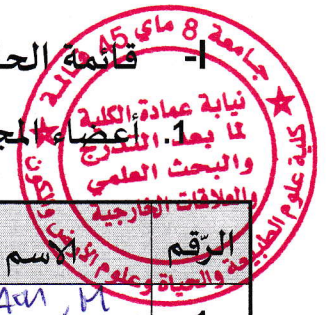 I- قائمة الحا
1. أعضاء المج
الرّقم
الاسم
جامعة 8 ماي 45 قالمة
نيابة عمادة الكلية
لما بعد التدرج
والبحث العلمي
والعلاقات الخارجية
كلية علوم الطبيعة والحياة وعلوم الأرض والكون